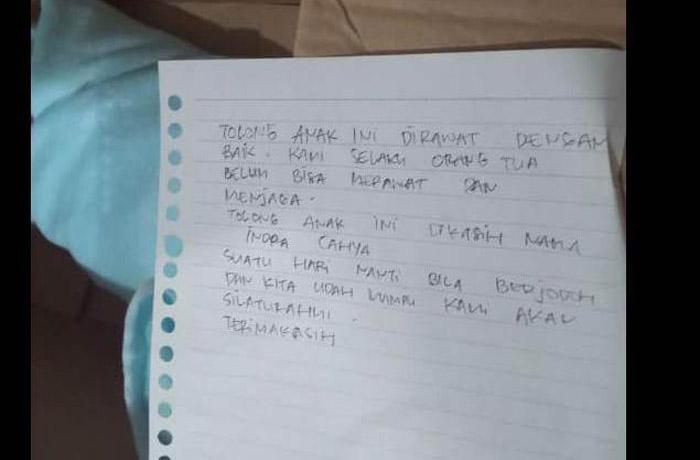 TOLONG ANAK INI DIRAWAT DENGAN
BAIK. KAMI SELAKU ORANG TUA
BELUM BISA MERAWAT DAN
MENJAGA.
TOLONG ANAK INI DIKASIH NAMA
INDRA CAHYA
SUATU HARI NANTI BILA BERJODOH
DAN KITA UDAH MAMPU KAMI AKAN
SILATURAHMI.
TERIMAKASIH